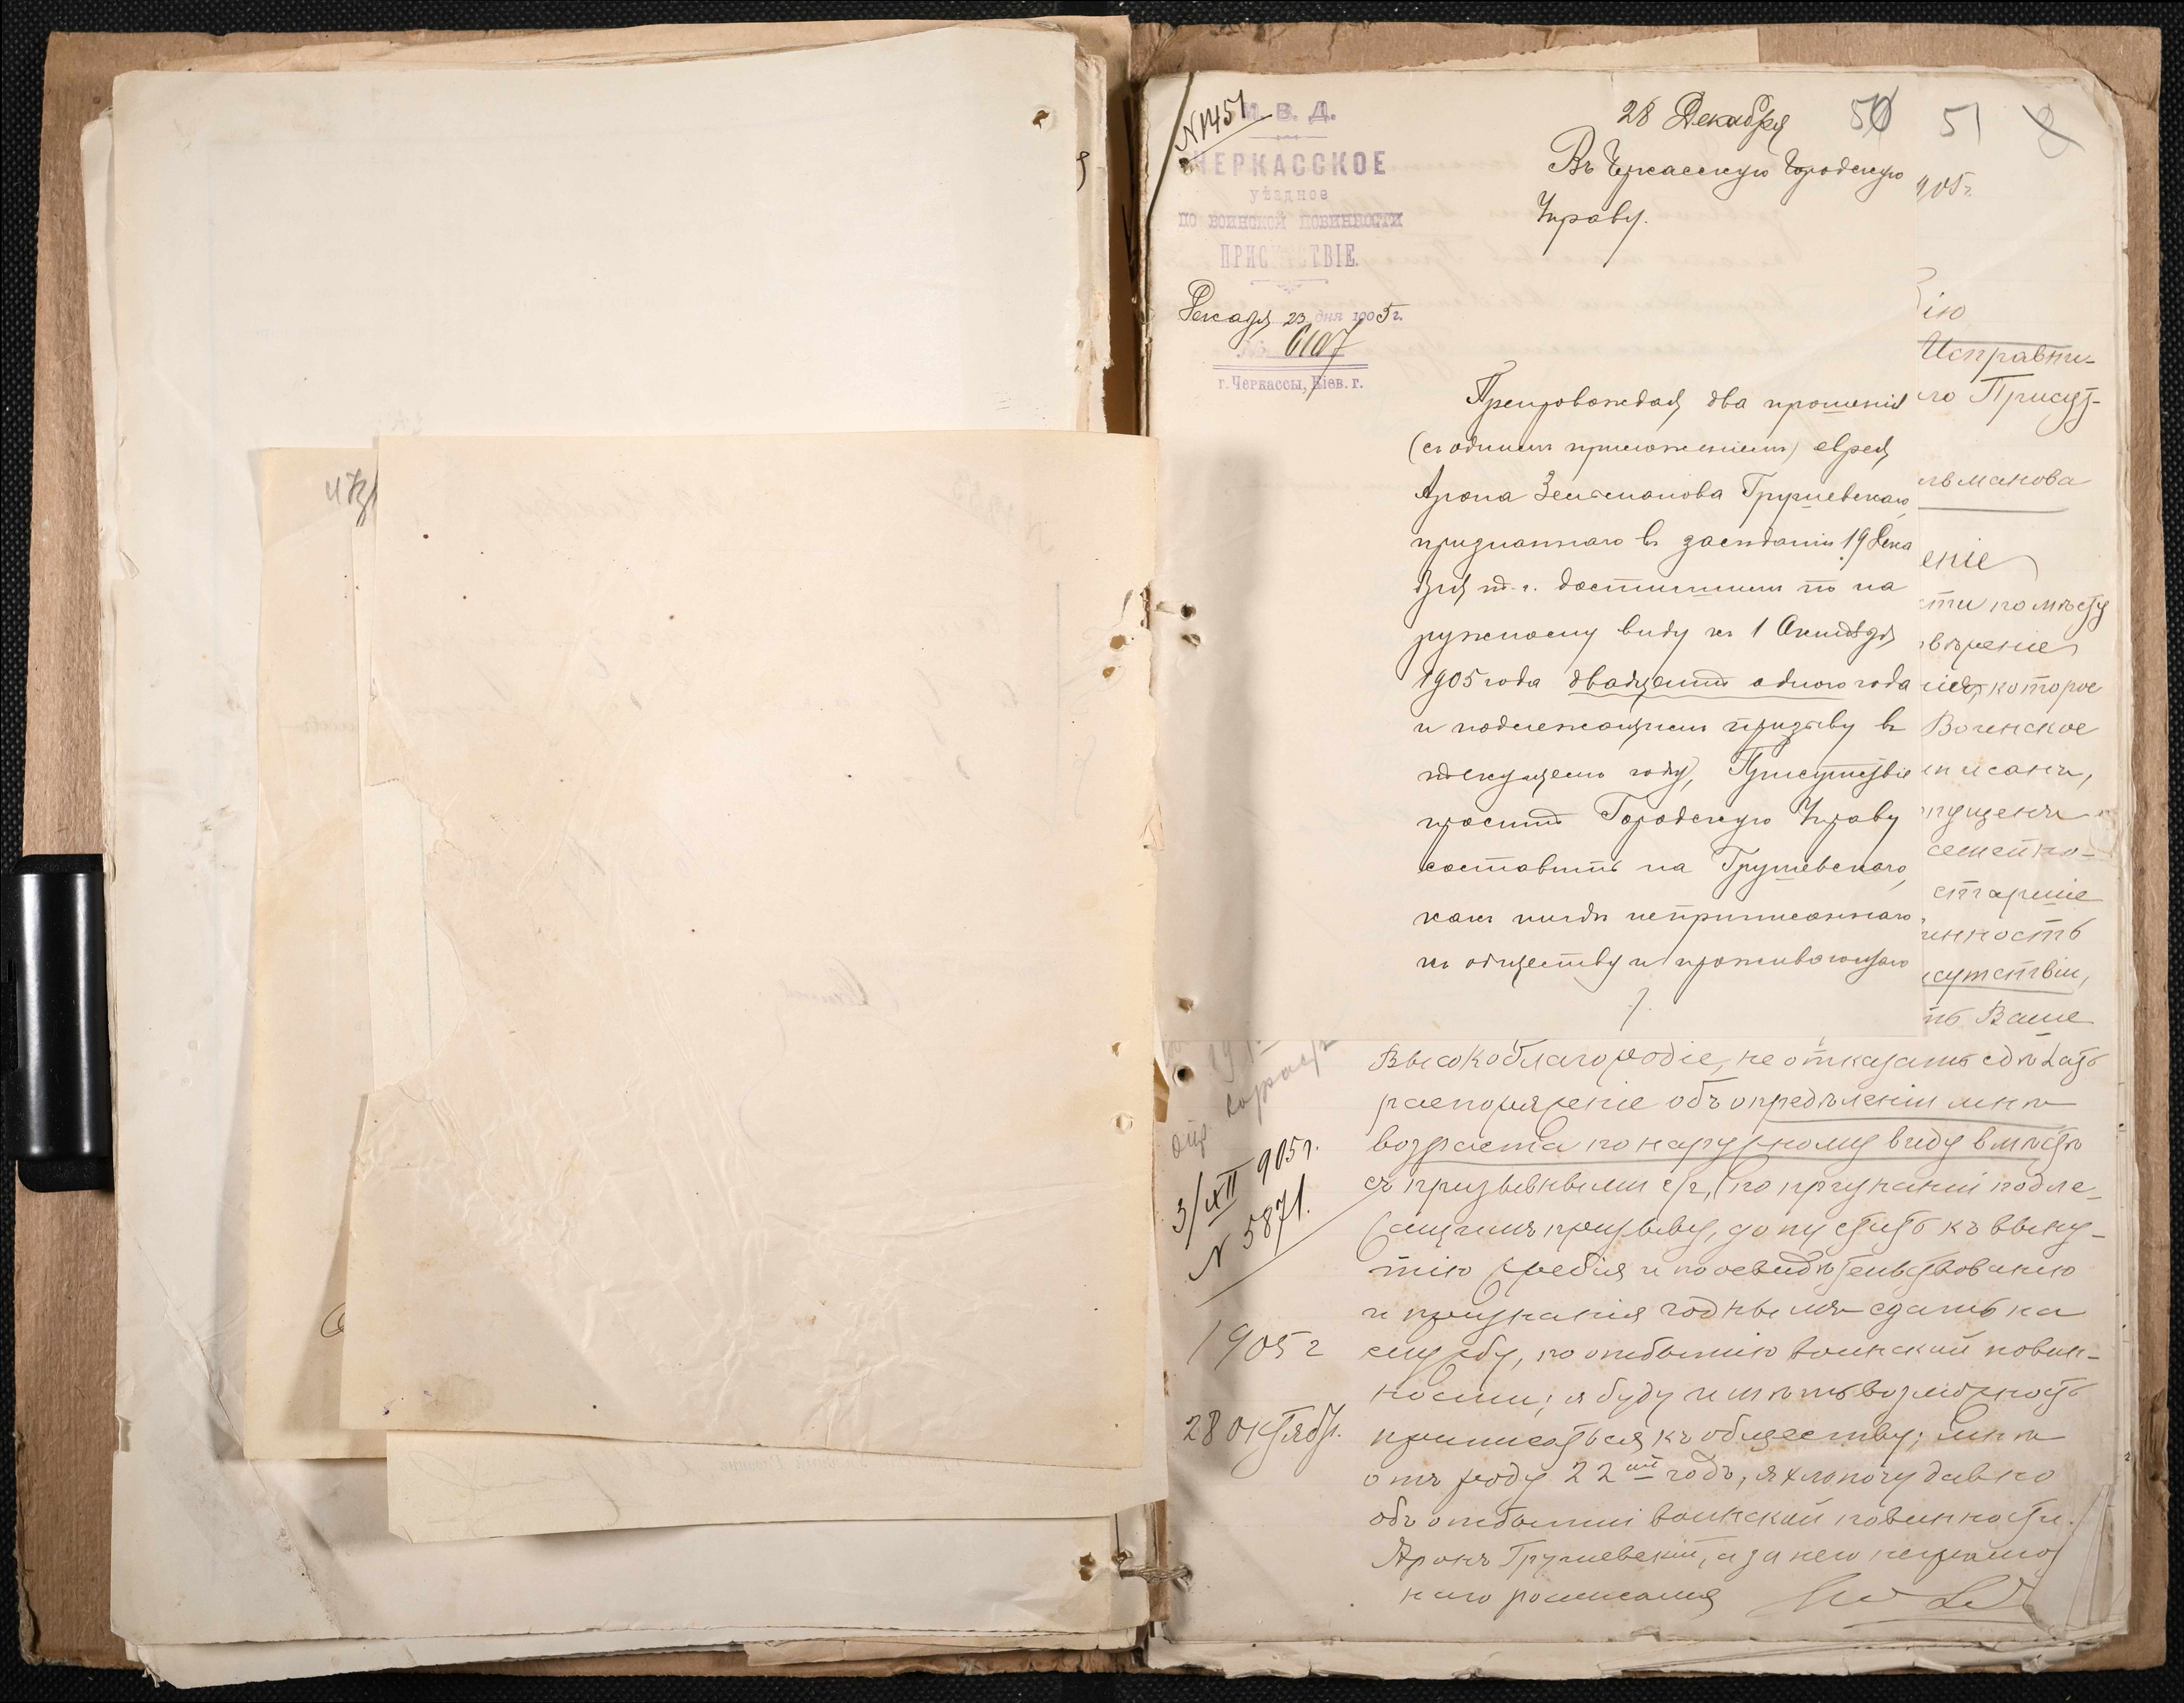 N 1451
М. В. Д.
ЧЕРКАССКОЕ
уѣздное
ПО ВОИНСКОЙ ПОВИННОСТИ
ПРИСУТСТВІЕ.
Декабря 23 дня 1905 г.
№ 6107
г. Черкассы, Кіев. г.
28 Декабря
50 51
Въ Черкасскую Городскую
Управу.
Препровождая два прошенія
(съ однимъ приложеніемъ) еврея
Арона Зельманова Грушевскаго,
признаннаго въ засѣданіи 19 Дека
бря т. г. достигшимъ по на
ружному виду къ 1 Октября
1905 года двадцати одного года
и подлежащимъ призыву въ
текущемъ году, Присутствіе
проситъ Городскую Управу
составить на Грушевскаго,
какъ нигдѣ неприписаннаго
къ обществу и проживающаго
905 г.
ію
Исправни-
го Присут-
ельманова
еніе
сти по мѣсту
которое
Воинское
писанъ,
пущенъ
семейно-
старшіе
инность
сутствіи,
ть Ваше
Высокоблагородіе, не отказать сдѣлать
распоряженіе объ опредѣленіи мнѣ
возраста по наружному виду вмѣстѣ
съ призывными с/г, по признаніи подле-
жащимъ призыву, допустить къ выну-
тію жребія и по освидѣтельствованію
и признанія годнымъ сдать на
службу, по отбытію воинской повин-
ности; я буду имѣть возможность
приписаться къ обществу; мнѣ
отъ роду 22ой годъ, я хлопочу давно
объ отбытіи воинской повинности.
Аронъ Грушевскій, а за него неграмот
наго росписался
3/XII 905 г.
N 5871.
1905 г
28 октябр.